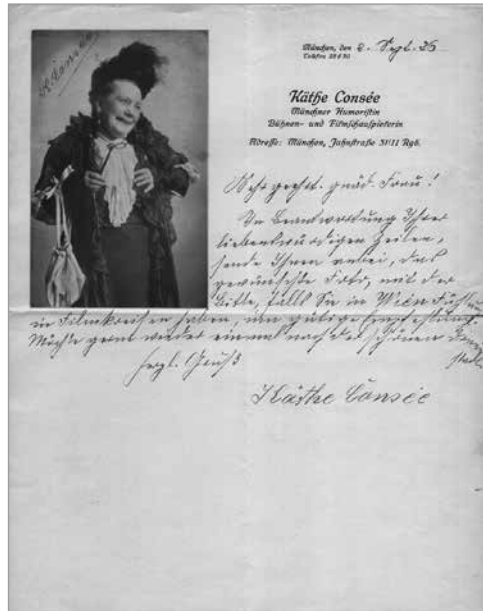 K. Consée
München, den 2. Sept. 26
Telefon
Käthe Consée
Münchner Humoristin
Bühnen- und Filmschauspielerin
Adresse: München, Jahnstraße 31/II Rgb.
Sehr geehrt. gnäd. Frau!
In Beantwortung Ihrer
liebenswürdigen Zeilen,
sende Ihnen anbei, das
gewünschte Foto, mit der
Bitte, falls Sie in Wien
in Filmkreisen haben, um gütige Empfehlung.
Möchte gerne wieder einmal nach der schönen
herzl. Gruß
Käthe Consée